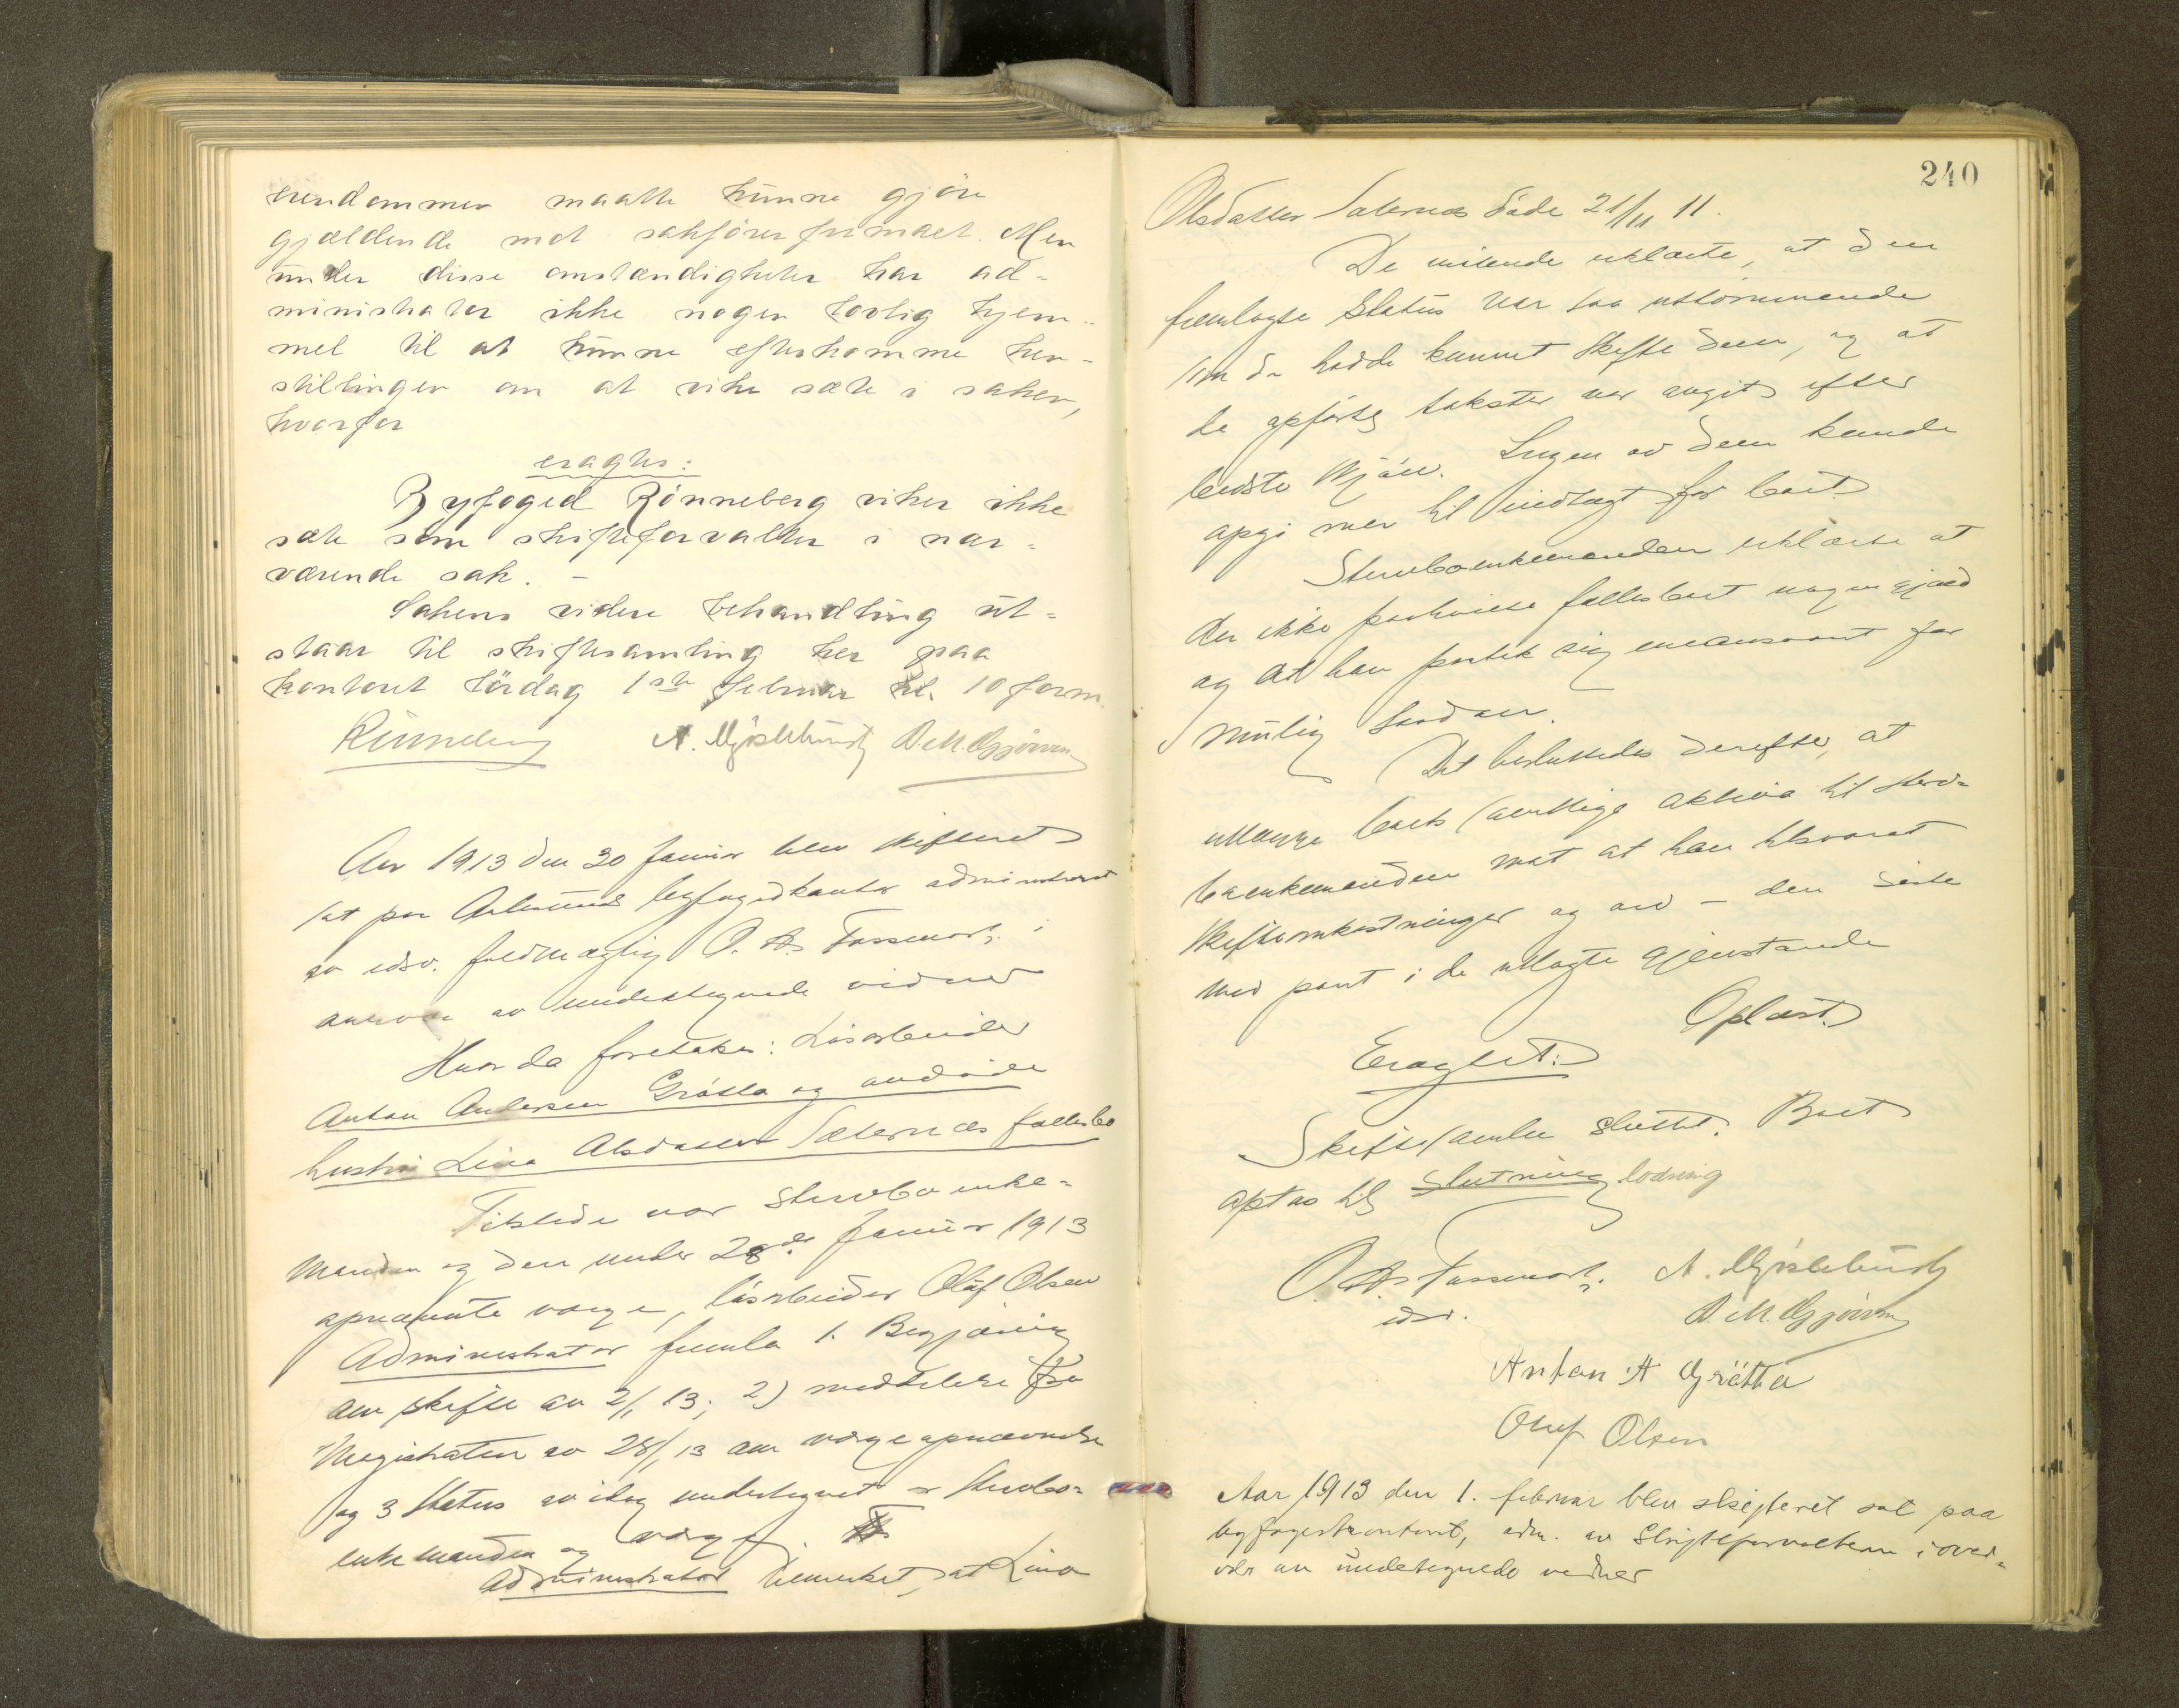 eiendommen maatte kunne gjöre
gjældende mot sakförerfirmaet. Men
under disse omstændigheter har ad-
ministrator ikke nogen lovlig hjem-
mel til at kunne efterkomme hen-
stillingen om at vike sæte i saken,
hvorfor
eragtes:
Byfoged Rönneberg viker ikke
sæte som skifteforvalter i nær-
værende sak. –
Sakens videre behandling ut-
staar til skiftesamling her paa
kontoret lördag 1ste februar kl. 10 form.
Rönneberg A. Mjöslehund D. M. Gjörven
Aar 1913 den 30 januar blev skifteret
sat paa Aalesunds byfogedkontor administreret
av edsv. fuldmægtig O. As. Fossmark i
nærvær av undertegnede vidner
Hvor da foretokes: Lösarbeider
Anton Andersen Grötta og avdöde
hustru Lina Olsdatter Sæternes fællesbo
Tilstede var stervboenke-
manden og den under 28de januar 1913
opnævnte verge, lösarbeider Oluf Olsen
Administrator fremla 1. Begjæring
om skifte av 2/1 13; 2) meddelelse fra
Magistraten av 28/1 13 om vergeopnævnelse
og 3 Status av idag undertegnet av stervbo-
enkemanden og verge.
Administrator bemerket, at Lina
240
Olsdatter Sæternes döde 21/11 11.
De mötende erklærte, at den
fremlagte Status var saa uttömmende
som de hadde kunnet skaffe den, og at
de opförte takster var angit efter
bedste skjön. Ingen av dem kunde
opgi mer til indtægt for boet.
Stervboenkemanden erklærte at
der ikke paahviler fællesboet nogen gjæld
og at han paatok sig eneansvaret for
mulig saadan.
Det besluttedes derefter, at
utlægge boets samtlige aktiva til sterv-
boenkemanden mot at han tilsvaret
skifteomkostninger og arv – den siste
med pant i de utlagte gjenstande
Oplæst.
Eragtet:
Skiftesamlin sluttet. Boet
optas til slutning lodning
O. As. Fossmark. A. Mjöslehund
edsv. D. M. Gjörven
Anton A Grötta
Oluf Olsen
Aar 1913 den 1. februar blev skifteret sat paa
byfogedkontoret, adm. av skifteforvalteren i over-
vær av undertegnede vidner